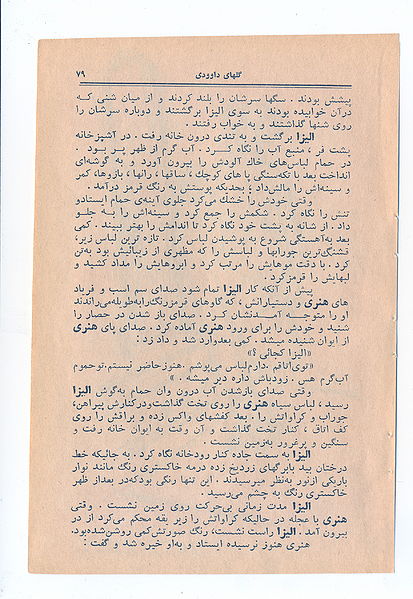 گلهای داوودی
۷۹
پیشش بودند . سگها سرشان را بلند کردند و از میان شنی که
درآن خوابیده بودند به سوی الیزا برگشتند و دوباره سرشان را
روی شنها گذاشتند و به خواب رفتند .
الیزا برگشت و به تندی درون خانه رفت . در آشپزخانه
پشت فر ، منبع آب را نگاه کرد . آب گرم از ظهر پر بود .
در حمام لباس‌های خاك آلودش را بیرون آورد و به گوشه‌ای
انداخت بعد با تکه‌سنگی پا های کوچك ، ساقها ، رانها ، بازوها، کمر
و سینه‌اش را مالش‌داد ؛ بحدیکه پوستش به رنگ قرمز درآمد .
وقتی خودش را خشك می‌کرد جلوی آینه‌ی حمام ایستادو
تنش را نگاه کرد . شکمش را جمع کرد و سینه‌اش را به جلو
داد . از شانه به پشت خود نگاه کرد تا اندامش را بهتر ببیند . کمی
بعد به‌آهستگی شروع به پوشیدن لباس کرد . تازه ترین لباس زیر،
قشنگ‌ترین جورابها و لباسش را که مظهری از زیبائیش بود به‌تن
کرد . با دقت موهایش را مرتب کرد و ابروهایش را مداد کشید و
لبهایش را قرمزکرد .
پیش از آنکه کار الیزا تمام شود صدای سم اسب و فریاد
های هنری و دستیارانش ، که گاوهای قرمزرنگ‌رابه‌طویله‌می‌راندند
او را متوجه آمدنشان کرد . صدای باز شدن در حصار را
شنید و خودش را برای ورود هنری آماده کرد . صدای پای هنری
از ایوان شنیده میشد . کمی بعدوارد شد و داد زد :
«الیزا کجائی ؟»
«توی‌اتاقم .دارم‌لباس می‌پوشم .هنوزحاضر نیستم.توحموم
آب‌گرم هس . زودباش داره دیر میشه . »
وقتی صدای بازشدن آب درون وان حمام به‌گوش الیزا
رسید ، لباس سیاه هنری را روی تخت گذاشت‌ودرکنارش پیراهن،
جوراب و کراواتش را . بعد کفشهای واکس زده و براقش را روی
کف اتاق ، کنار تخت گذاشت و آن وقت به ایوان خانه رفت و
سنگین و پرغرور به‌زمین نشست .
الیزا به سمت جاده کنار رودخانه نگاه کرد . به جائیکه خط
درختان بید بابرگهای زردیخ زده درمه خاکستری رنگ مانند نوار
باریکی ازنور به‌نظر میرسیدند . این تنها رنگی بودکه‌در بعداز ظهر
خاکستری رنگ به چشم می‌رسید .
الیزا مدت زمانی بی‌حرکت روی زمین نشست . وقتی
هنری با عجله در حالیکه کراواتش را زیر یقه محکم می‌کرد از در
بیرون آمد . الیزا راست نشست، رنگ صورتش‌کمی روشن‌شده‌بود.
هنری هنوز نرسیده ایستاد و به‌او خیره شد و گفت :